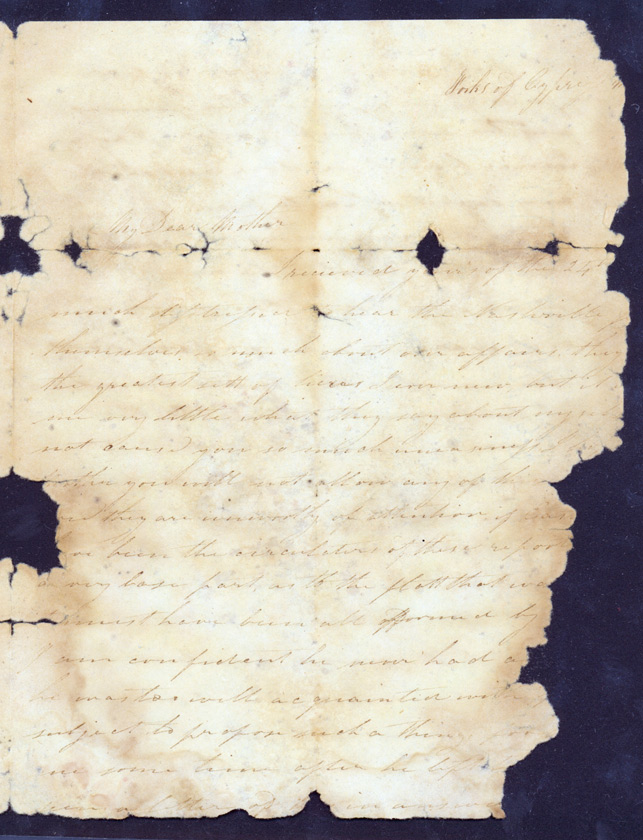 Forks of Cypre
My Dear Mother
I recieved yours of the 24
much distressed to hear the Nashvill
themselves so much about our affairs they
the greatest sett of liars I ever new but it
me very little what they say about myse
not cause you so much uneasiness
you will not allow any of the
they are unworthy of attention if
been the circulators of these repor
a very base part as to the plott that wa
must have been all formed by
I am confident he never had a
he was too well acquainted with
subject to propose such a thing
me some time after he left
a letter of in answ